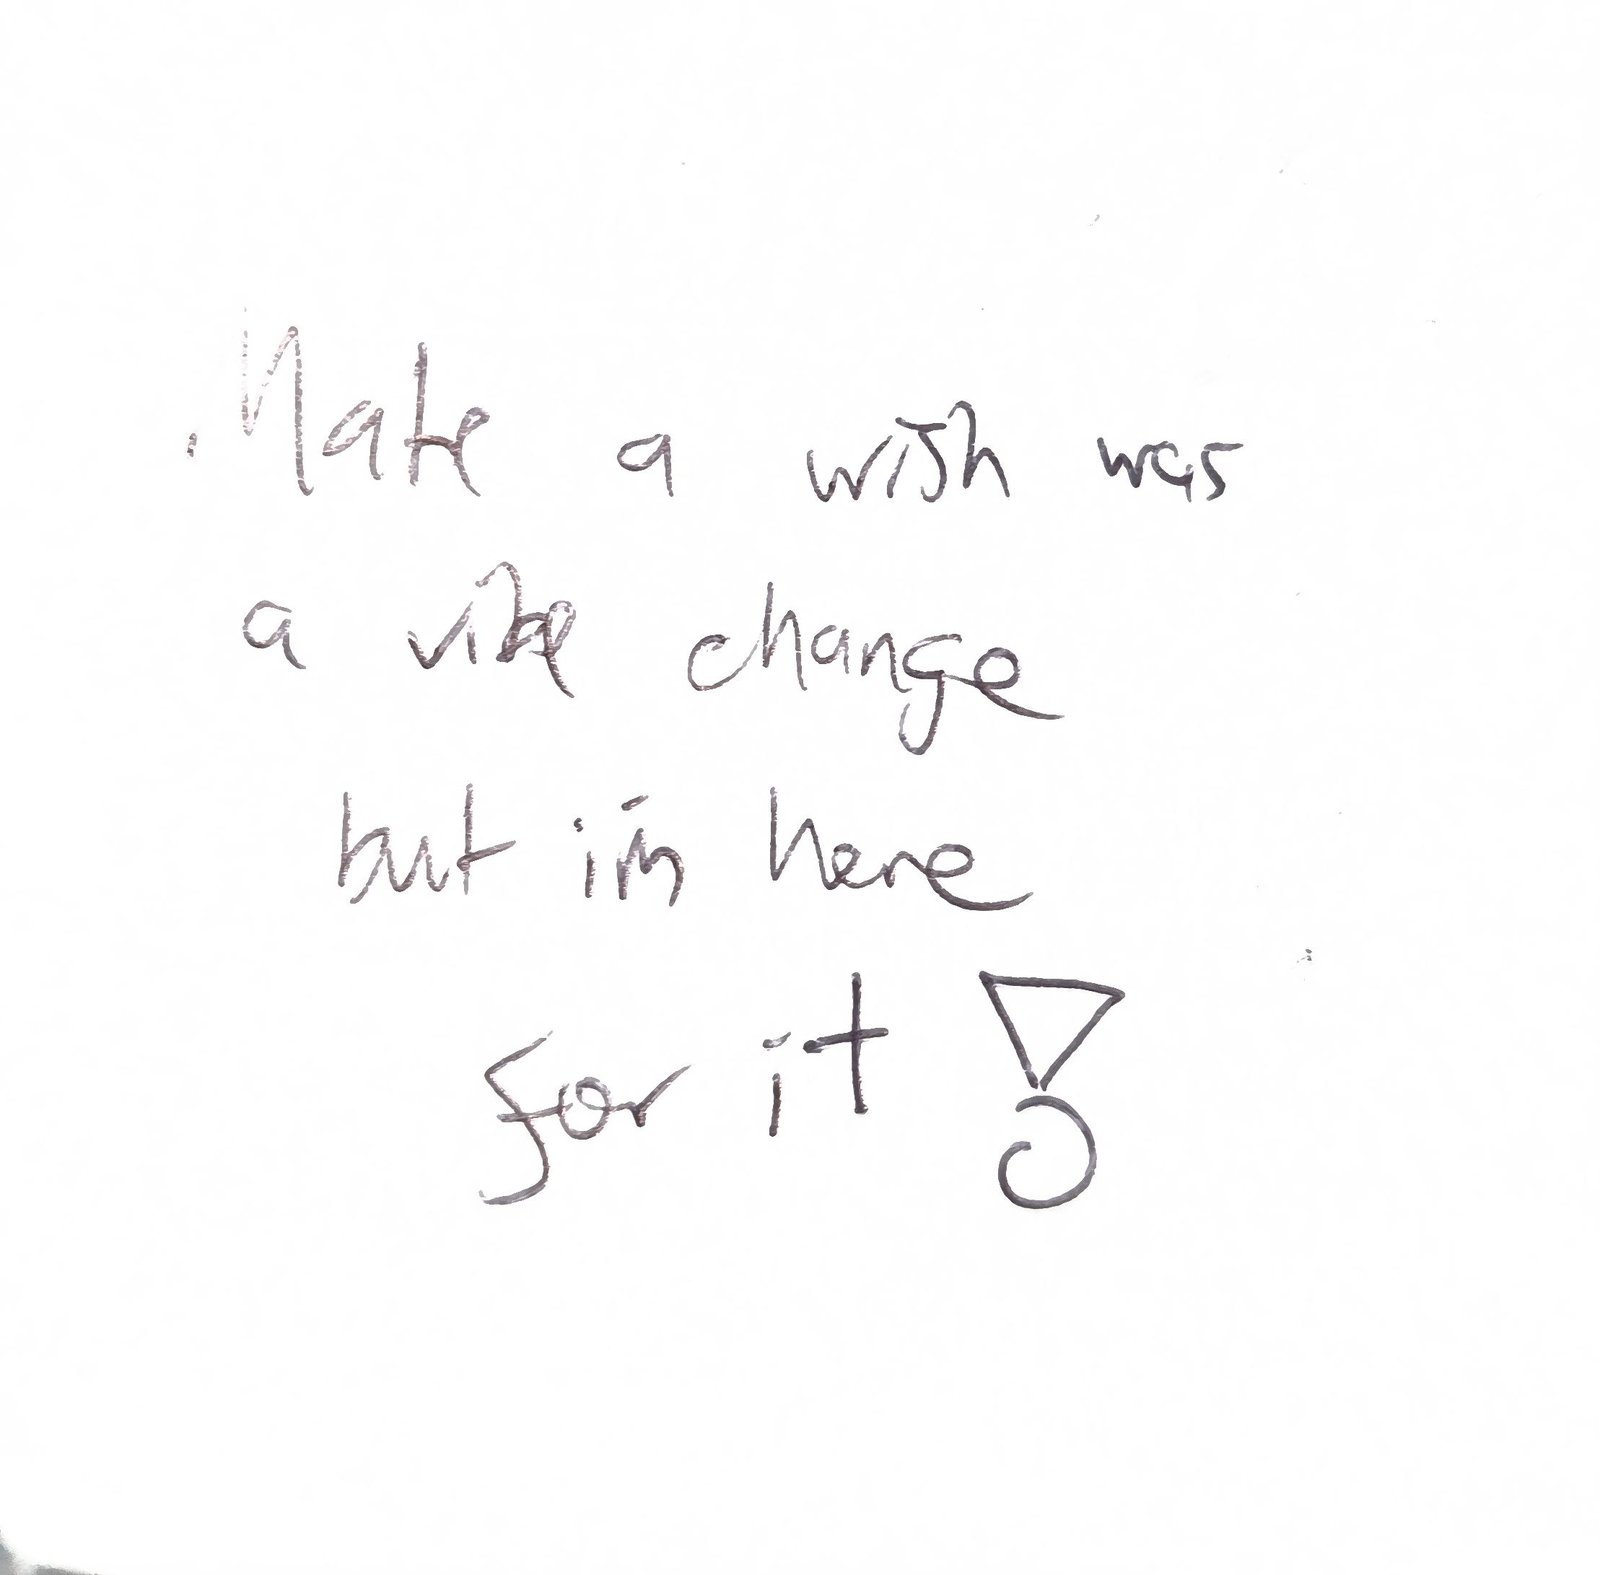 Make a wish was
a vibe change
but i'm here
for it!